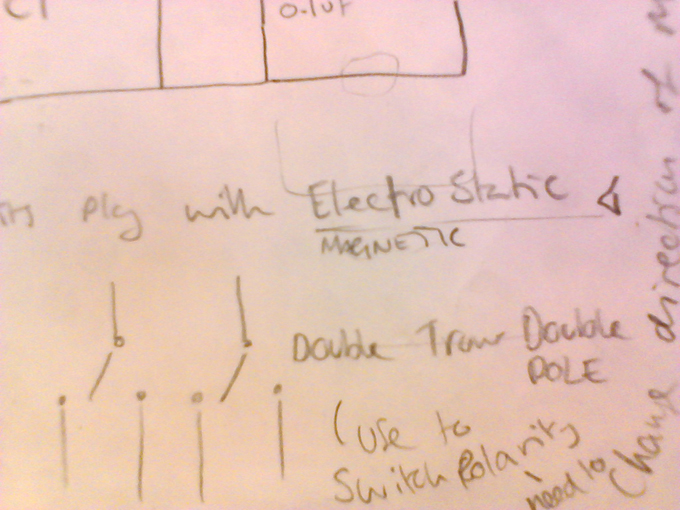 C1
0.1uf
play with ElectroStatic
MAGNETIC
Double Trow Double
POLE
(use to
Switch Polarity
need to
Change direction of